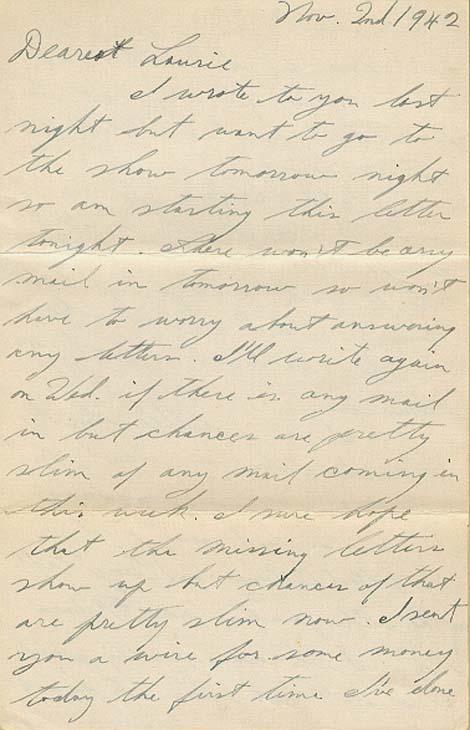 Nov. 2nd 1942
Dearest Laurie
I wrote to you last
night but want to go to
the show tomorrow night
so am starting this letter
tonight. There won't be any
mail in tomorrow so won't
have to worry about answering
any letters. I'll write again
on Wed. if there is any mail
in but chances are pretty
slim of any mail coming in
this week. I sure hope
that the missing letters
show up but chances of that
are pretty slim now. I sent
you a wire for some money
today the first time I've done